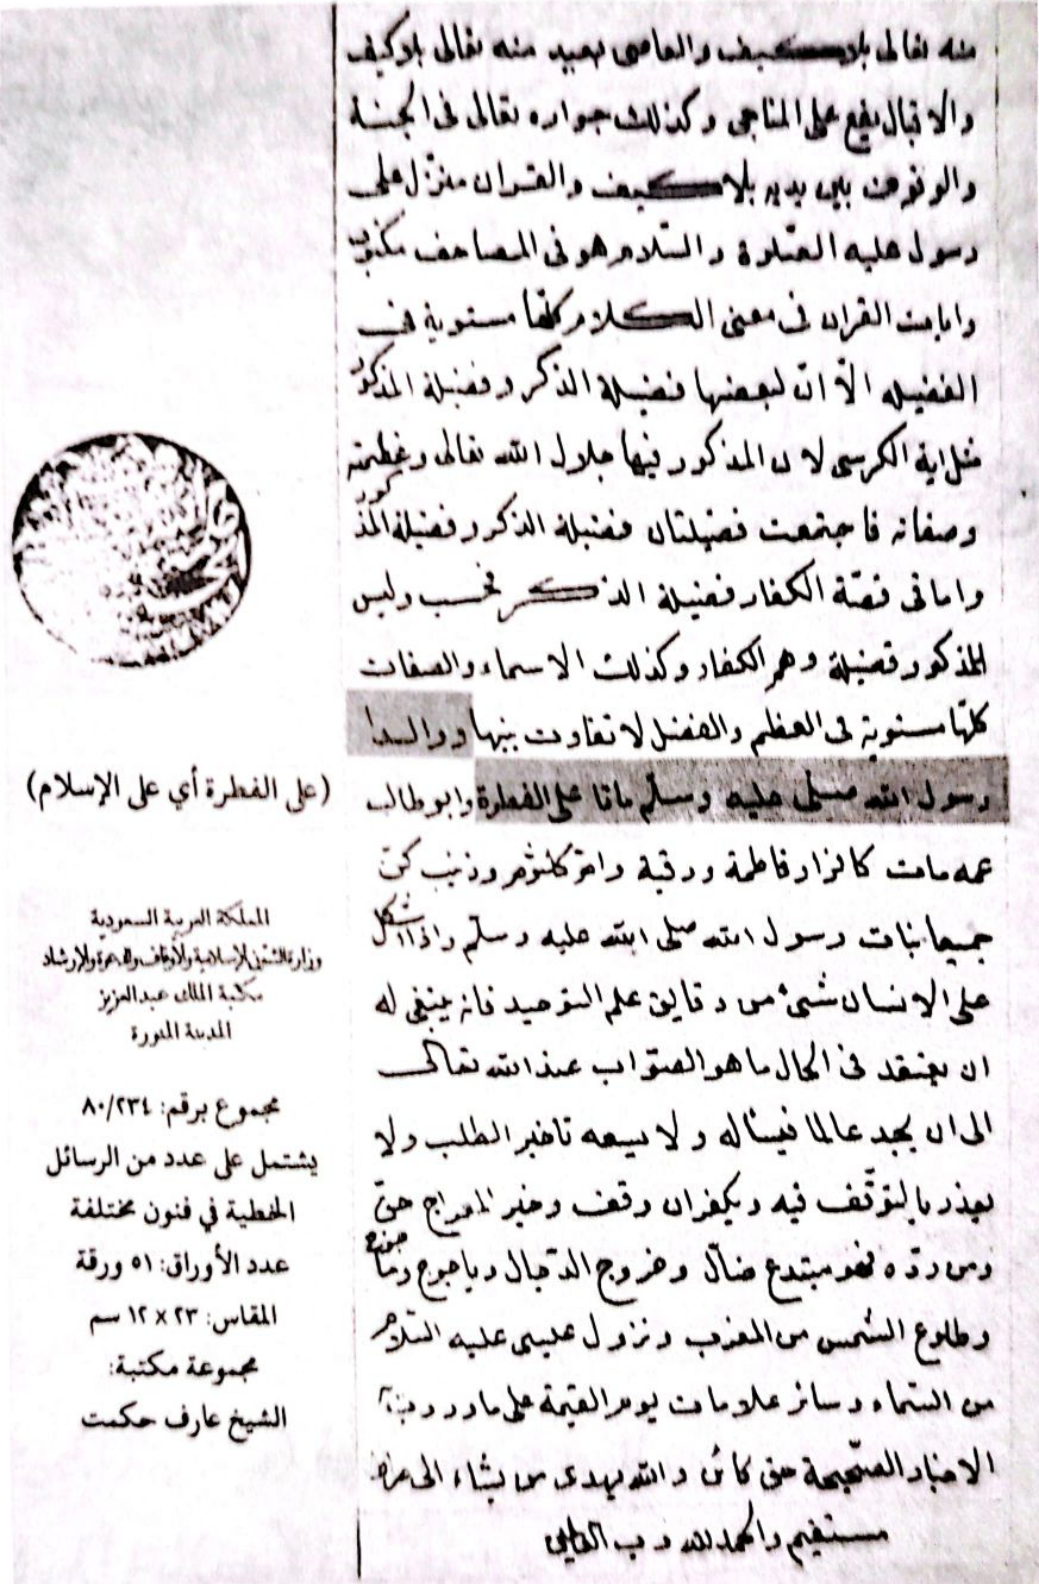 منه تعالى بلا كيف والعاصى بعيد منه تعالى بلا كيف
والاقبال يقع على المناجى وكذلك جواره تعالى فى الجنة
والوقوف بين يديه بلا كيف والقران منزل على
رسول عليه الصلوة والسلام هو فى المصاحف مكتوب
وايات القران فى معنى الكلام كلها مستوية فى
الفضيله الّا انّ لبعضها فضيلة الذكر وفضيلة المذكور
مثل اية الكرسى لان المذكور فيها جلال الله تعالى وعظمته
وصفاته فاجتمعت فضيلتان فضيلة الذكر وفضيلة المذكور
واما فى قصّة الكفار فضيلة الذكر فحسب وليس
للمذكور فضيلة وهم الكفار وكذلك الاسماء والصفات
كلّها مستوية فى العظم والفضل لا تفاوت بينها ووالدا
رسول الله صلّى عليه وسلّم ماتا على الفطرة وابو طالب
(على الفطرة أي على الإسلام)
عمه مات كافرا وفاطمة ورقية وام كلثوم وزينب كنّ
جميعا بنات رسول الله صلى الله عليه وسلّم واذا اشكل
على الانسان شئ من دقايق علم التوحيد فانه ينبغى له
ان يعتقد فى الحال ما هو الصوّاب عند الله تعالى
الى ان يجد عالما فيسأله ولا يسعه تاخير الطلب ولا
يعذر بالتوقّف فيه ويكفر ان وقف وخبر المعراج حقّ
ومن ردّه فهو مبتدع ضالّ وخروج الدّجال وياجوج وماجوج
وطلوع الشمس من المغرب ونزول عليسى عليه السّلام
من السّماء وسائر علامات يوم القيمة على ما وردت به
الاخبار الصّحيحة حق كائن والله يهدى من يشاء الى صراط
مستقيم والحمد لله رب العالمين
المملكة العربية السعودية
وزارة الشئون الإسلامية والأوقاف والدعوة والإرشاد
مكتبة الملك عبد العزيز
المدينة المنورة
مجموع برقم: ٨٠/٢٣٤
يشتمل على عدد من الرسائل
الخطية في فنون مختلفة
عدد الأوراق: ٥١ ورقة
المقاس: ٢٣ × ١٢ سم
مجموعة مكتبة:
الشيخ عارف حكمت